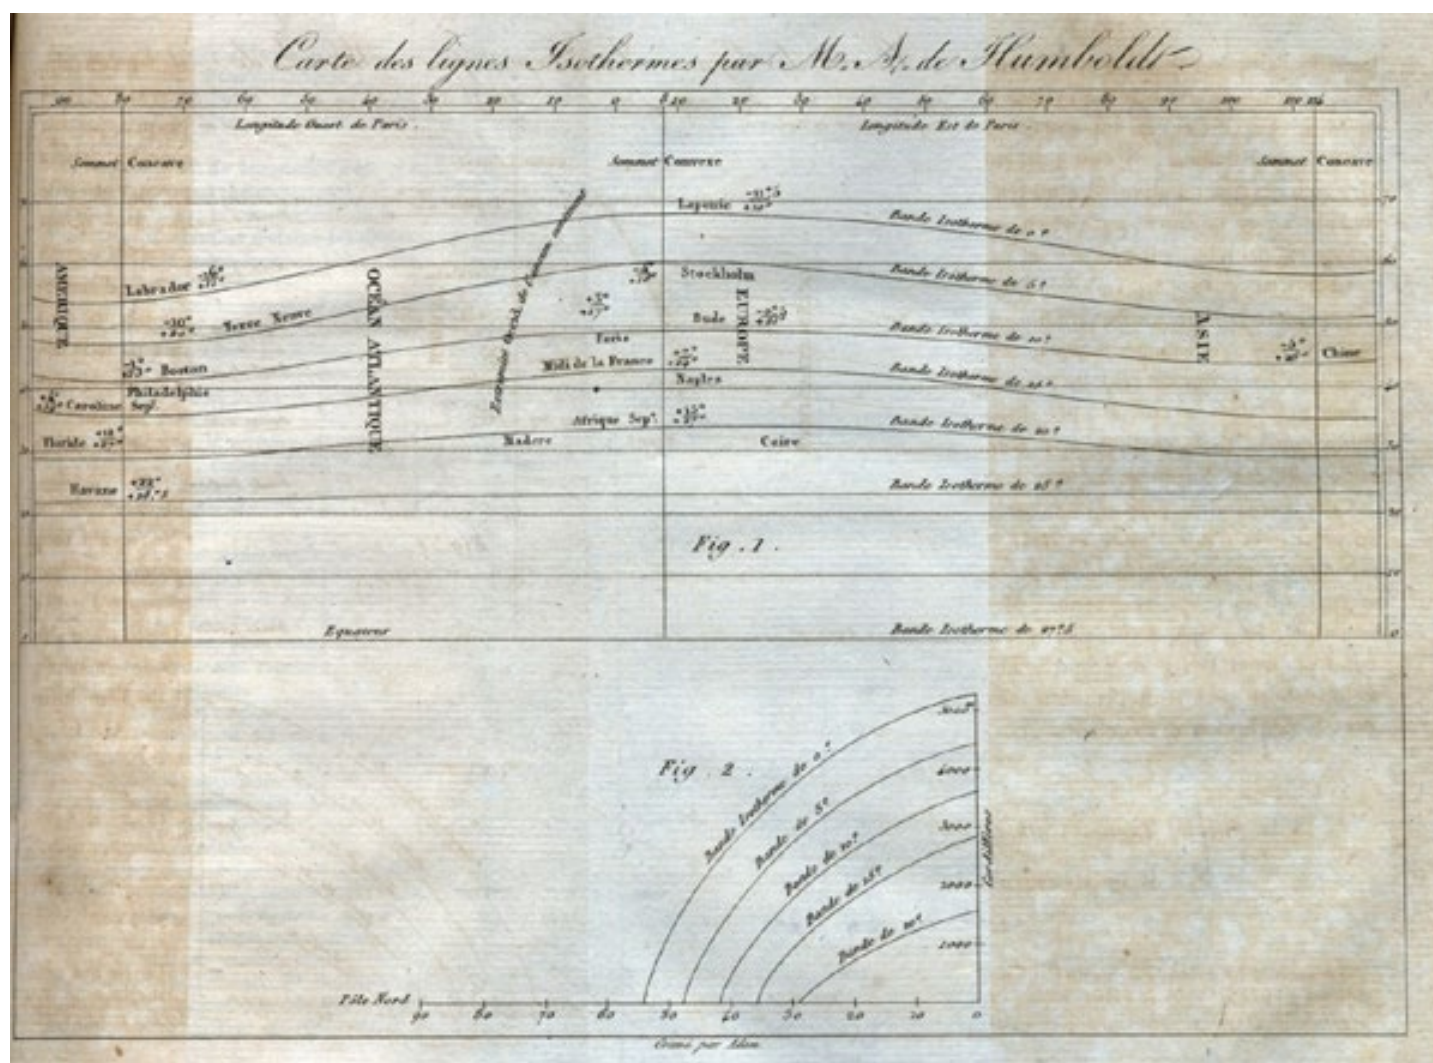 Carte des lignes Isothermes par M. A. de Humboldt
90 80 70 60 50 40 30 20 10 0 8 10 20 30 40 50 60 70 80 90 100 110 116
Longitude Ouest de Paris.
Longitude Est de Paris.
Sommet Concave
Sommet Convexe
Sommet Concave
70
Laponie
Bande Isotherme de 0°
60
Labrador
Stockholm
Bande Isotherme de 5°
AMERIQUE
OCÉAN ATLANTIQUE
EUROPE
ASIE
Terre Neuve
Bude
50
Paris
Bande Isotherme de 10°
Chine
Boston
Midi de la France
Naples
Bande Isotherme de 15°
40
Philadelphie
Caroline Sepl.
Floride
Afrique Sepl.
Bande Isotherme de 20°
Madere
Caire
Havane
Bande Isotherme de 25°
20
Fig. 1.
10
Equateur
Bande Isotherme de 27°5
0
Fig. 2.
5000
4000
3000
2000
1000
Cordillères
Bande Isotherme de 0°
Bande de 5°
Bande de 10°
Bande de 15°
Bande de 20°
Pôle Nord
90 80 70 60 50 40 30 20 10 0
Gravé par Adam